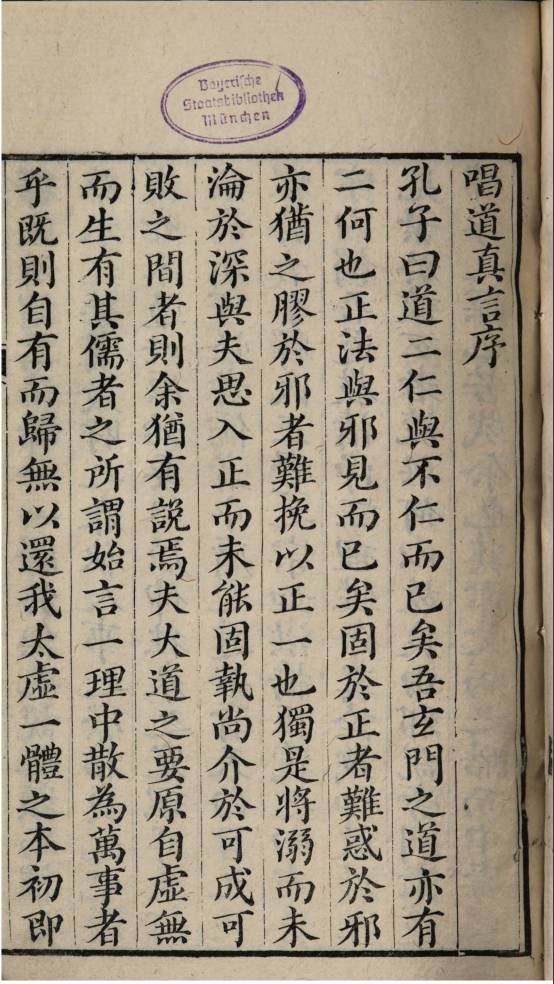 Bayerische
Staatsbibliothek
München
唱道真言序
孔子曰道二仁與不仁而已矣吾玄門之道亦有
二何也正法與邪見而已矣固於正者難惑於邪
亦猶之膠於邪者難挽以正一也獨是將溺而未
淪於深與夫思入正而未能固執尚介於可成可
敗之間者則余猶有說焉夫大道之要原自虛無
而生有其儒者之所謂始言一理中散為萬事者
乎既則自有而歸無以還我太虛一體之本初即